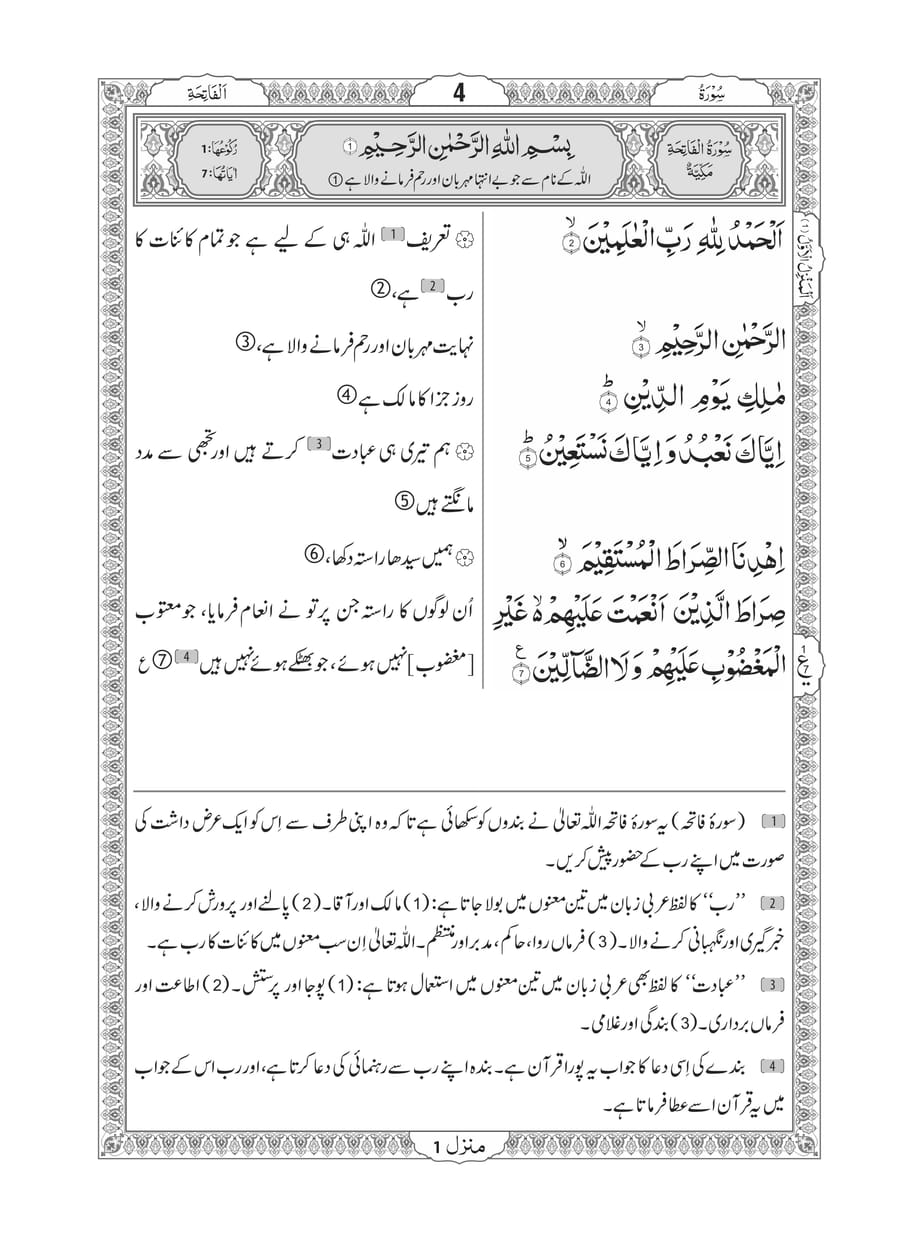 سُوْرَةُ
4
اَلْفَاتِحَةِ
سُوْرَةُ الْفَاتِحَةِ
مَكِّيَّةٌ
بِسْمِ اللّٰهِ الرَّحْمٰنِ الرَّحِيْمِ 1
اللہ کے نام سے جو بے انتہا مہربان اور رحم فرمانے والا ہے ①
رُكُوْعُهَا: 1
اٰيَاتُهَا: 7
اَلْمَنْزِلُ الْاَوَّلُ (۱)
اَلْحَمْدُ لِلّٰهِ رَبِّ الْعٰلَمِيْنَ ۙ 2
تعریف 1 اللہ ہی کے لیے ہے جو تمام کائنات کا
رب 2 ہے، ②
الرَّحْمٰنِ الرَّحِيْمِ ۙ 3
نہایت مہربان اور رحم فرمانے والا ہے، ③
مٰلِكِ يَوْمِ الدِّيْنِ ؕ 4
روز جزا کا مالک ہے ④
اِيَّاكَ نَعْبُدُ وَ اِيَّاكَ نَسْتَعِيْنُ ؕ 5
ہم تیری ہی عبادت 3 کرتے ہیں اور تجھی سے مدد
مانگتے ہیں ⑤
اِهْدِنَا الصِّرَاطَ الْمُسْتَقِيْمَ ۙ 6
ہمیں سیدھا راستہ دکھا، ⑥
صِرَاطَ الَّذِيْنَ اَنْعَمْتَ عَلَيْهِمْ ۙ۬ غَيْرِ
الْمَغْضُوْبِ عَلَيْهِمْ وَ لَا الضَّآلِّيْنَ 7 ع
اُن لوگوں کا راستہ جن پر تو نے انعام فرمایا، جو معتوب
[مغضوب] نہیں ہوئے، جو بھٹکے ہوئے نہیں ہیں 4 ⑦ ع
1 (سورۂ فاتحہ) یہ سورۂ فاتحہ اللہ تعالیٰ نے بندوں کو سکھائی ہے تاکہ وہ اپنی طرف سے اِس کو ایک عرض داشت کی
صورت میں اپنے رب کے حضور پیش کریں۔
2 ’’رب‘‘ کا لفظ عربی زبان میں تین معنوں میں بولا جاتا ہے: (1) مالک اور آقا۔ (2) پالنے اور پرورش کرنے والا،
خبر گیری اور نگہبانی کرنے والا۔ (3) فرماں روا، حاکم، مدبر اور منتظم۔ اللہ تعالیٰ اِن سب معنوں میں کائنات کا رب ہے۔
3 ’’عبادت‘‘ کا لفظ بھی عربی زبان میں تین معنوں میں استعمال ہوتا ہے: (1) پوجا اور پرستش۔ (2) اطاعت اور
فرماں برداری۔ (3) بندگی اور غلامی۔
4 بندے کی اِسی دعا کا جواب یہ پورا قرآن ہے۔ بندہ اپنے رب سے رہنمائی کی دعا کرتا ہے، اور رب اس کے جواب
میں یہ قرآن اسے عطا فرماتا ہے۔
منزل 1